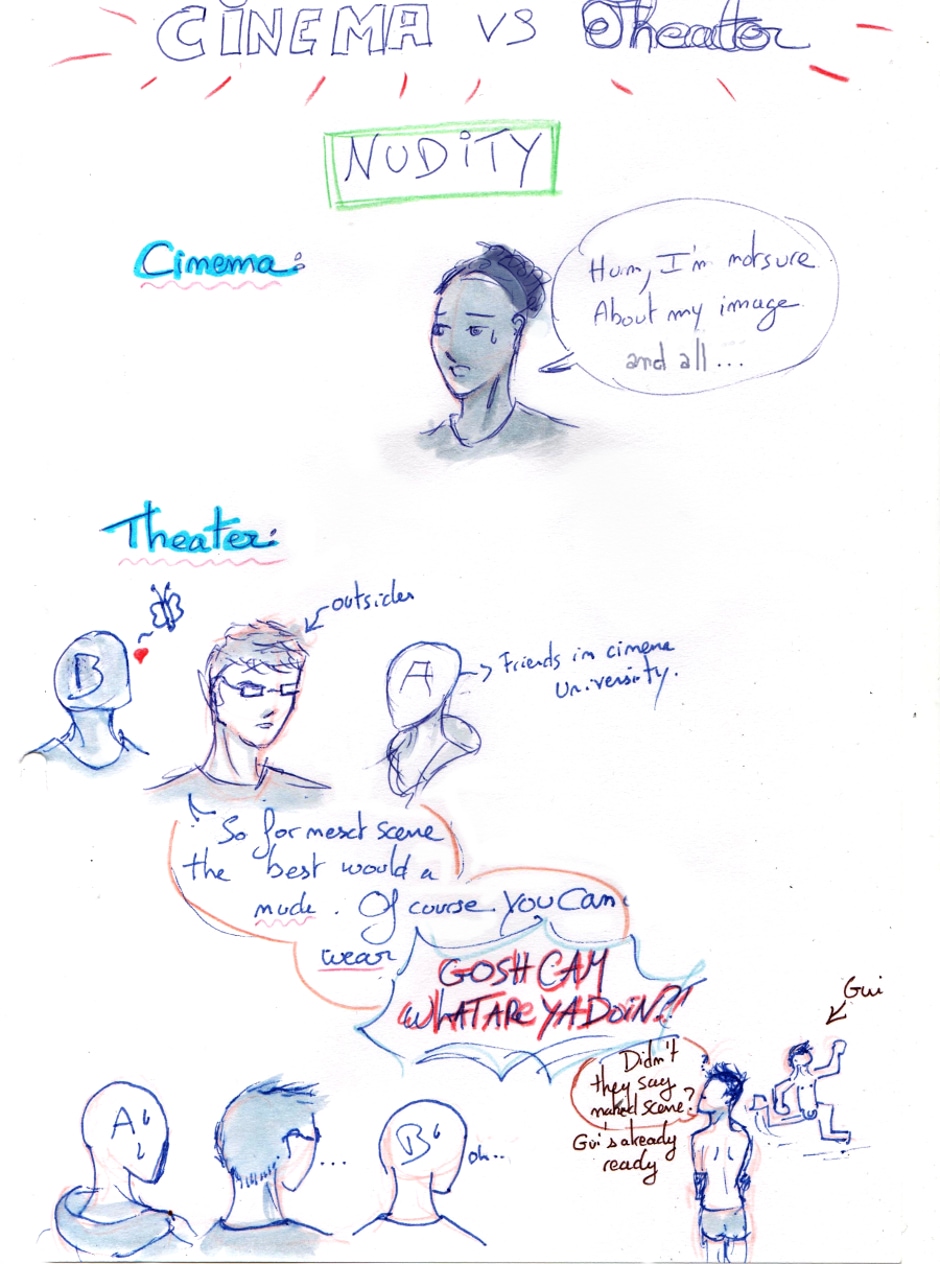 CINEMA VS Theater
NUDITY
Cinema:
Hum, I'm not sure
About my image
and all ...
Theater:
outsider
B
A
Friends in cinema
University.
So for next scene
the best would a
nude. Of course You Can
wear
GOSH CAM
WHAT ARE YA DOIN?!
Gui
Didn't
they say
naked scene?
Gui's already
ready
A
...
B
oh...